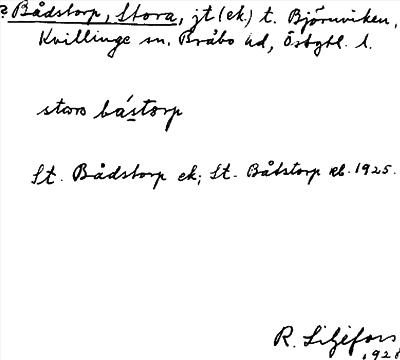 Bådstorp, Stora, jt (ek.) t. Björnviken,
Kvillinge sn. Bråbo hd, Östgtl. l.
stora båstorp
St. Bådstorp ek; St. Båtstorp rb. 1925.
R. Liljefors